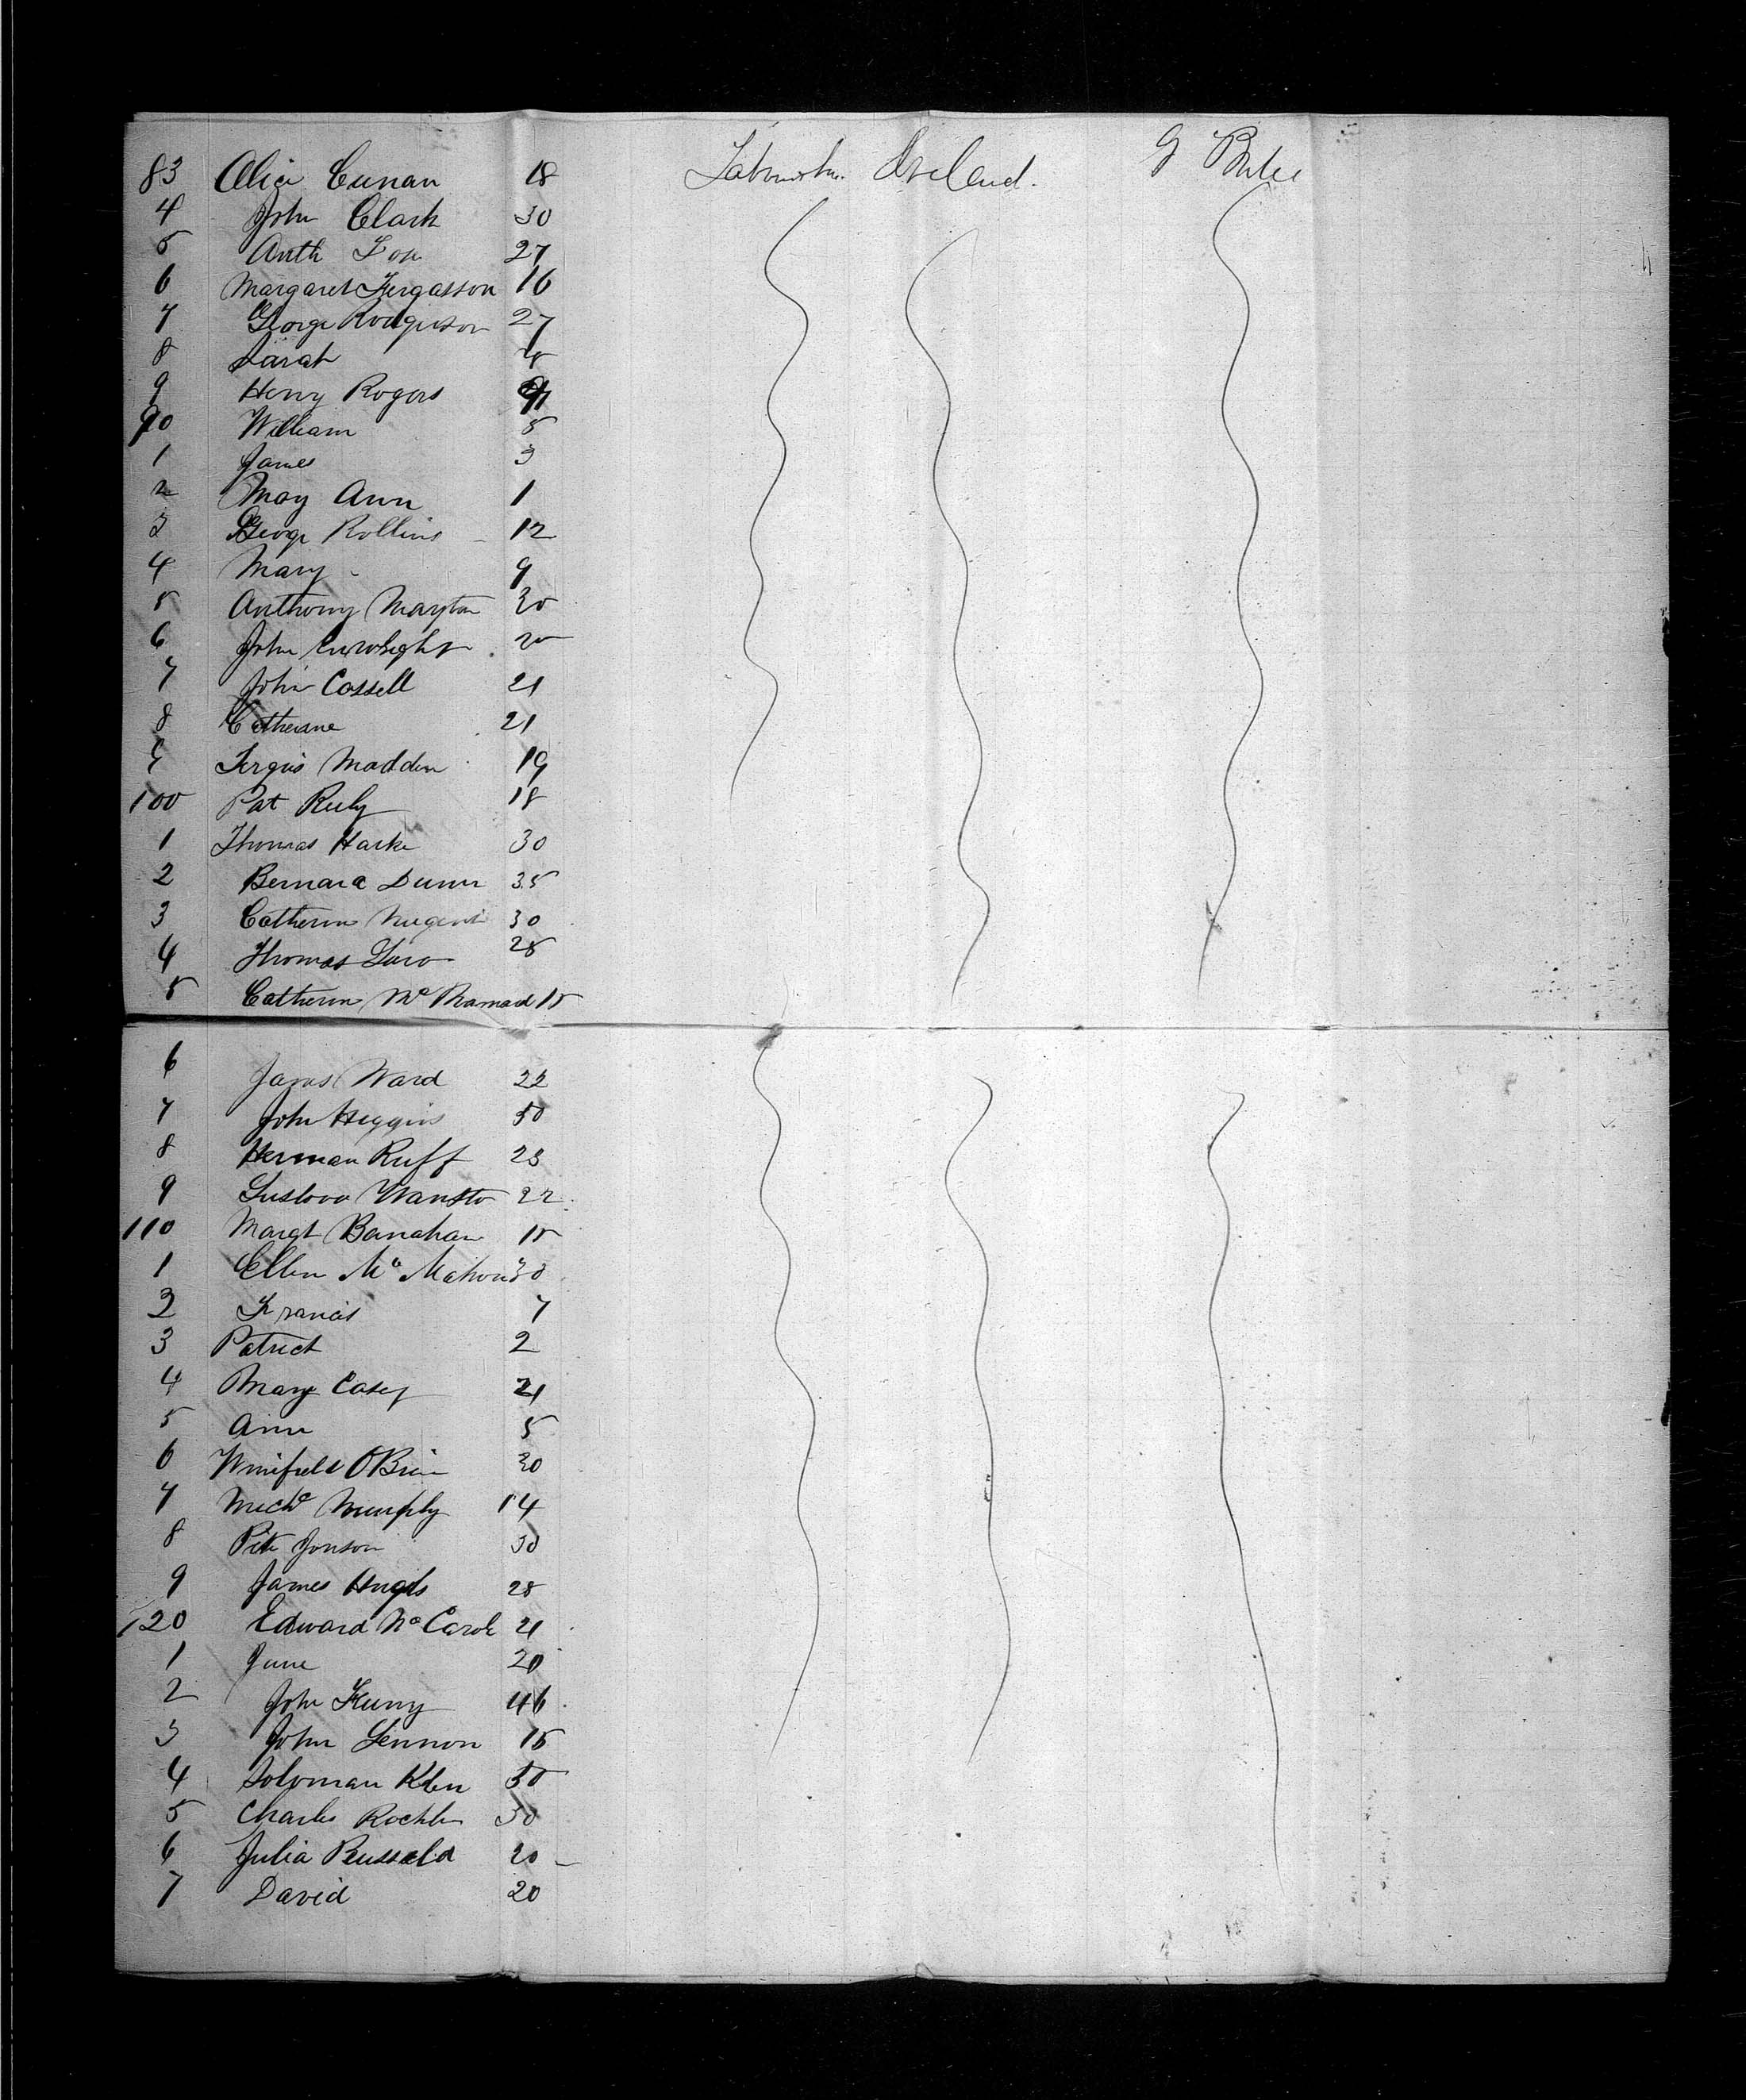 83 Alice Cunan 18 Ireland.
4 John Clark 30
5 Anth Fox 27
6 Margaret Fergasson 16
7 George 27
8 Sarah
9 Henry Rogers
90 William 5
1 James 3
2 May Ann 1
3 George Rollins 12
4 Mary 9
5 Anthony 30
6 John 20
7 John Cassell 21
8 Catherine 21
9 Fergus Madden 19
100 Pat 18
1 Thomas Harke 30
2 Bernard Dunn 35
3 Catherine Nugent 30
4 Thomas 28
5 Catherine Mc 15
6 James Ward 22
7 John Higgins 50
8 Herman Ruff 23
9 22
110 Margt Banahan 15
1 Ellen Mc Mahon 30
2 Francis 7
3 Patrick 2
4 Mary Casey 21
5 Ann 5
6 Winifred OBrien 30
7 Michl Murphy 14
8 Pete Jonson 30
9 James Hugds 28
120 Edward Mc 21
1 Jane 20
2 John 46
3 John Lennon 15
4 Soloman Klen 50
5 Charles 30
6 Julia 20
7 David 20